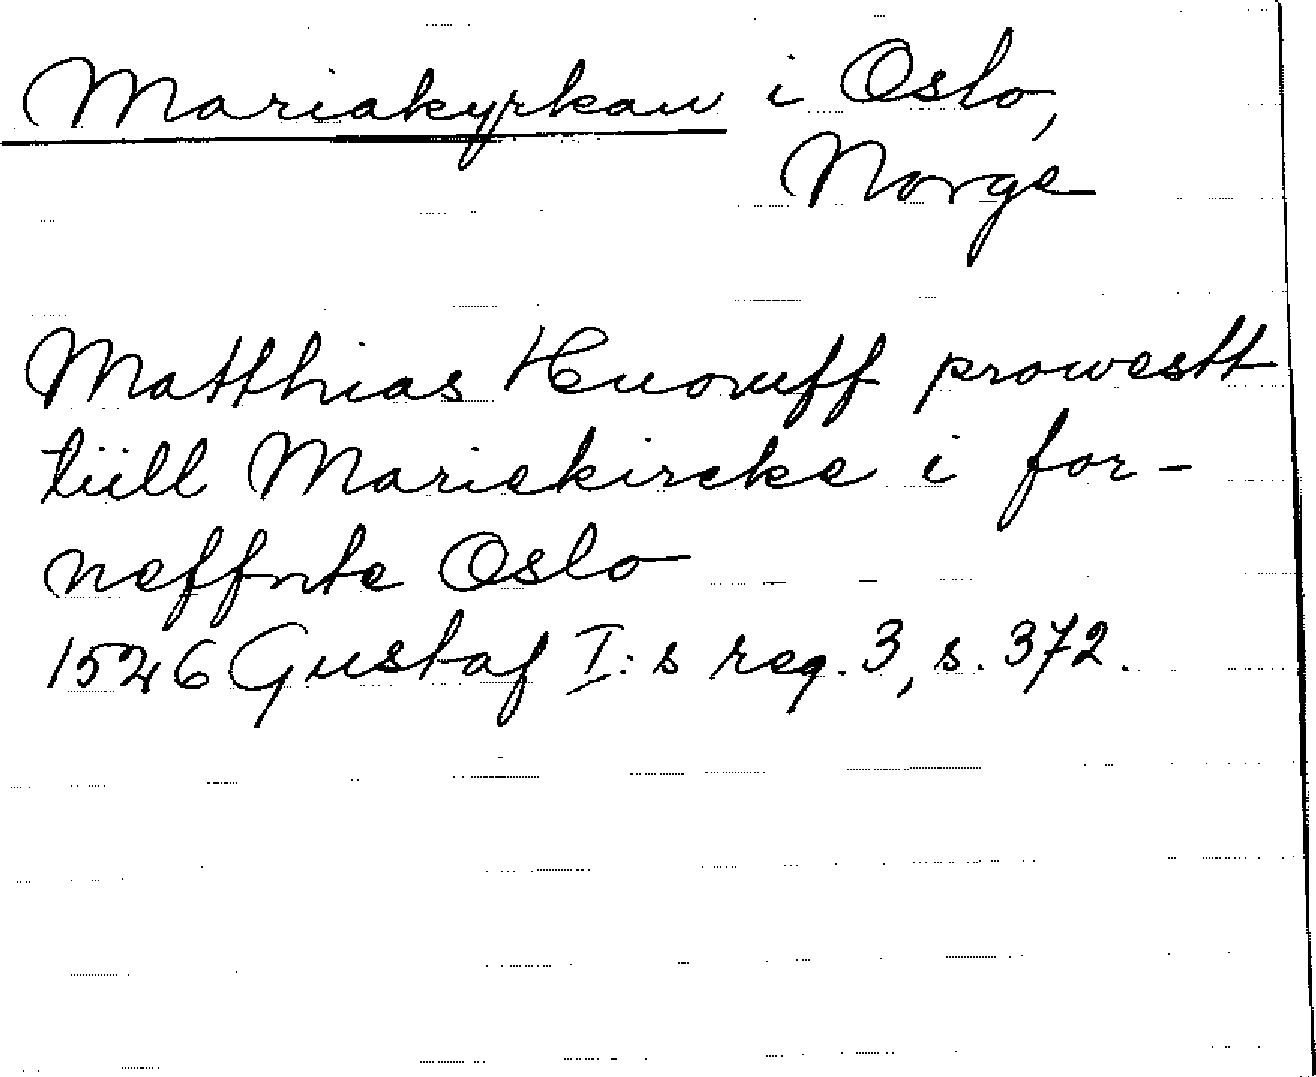 Mariakyrkan i Oslo,
Norge
Matthias Huoruff prowestt
tiill Mariekircke i for-
neffnte Oslo
1526 Gustaf I:s reg. 3, s. 372.